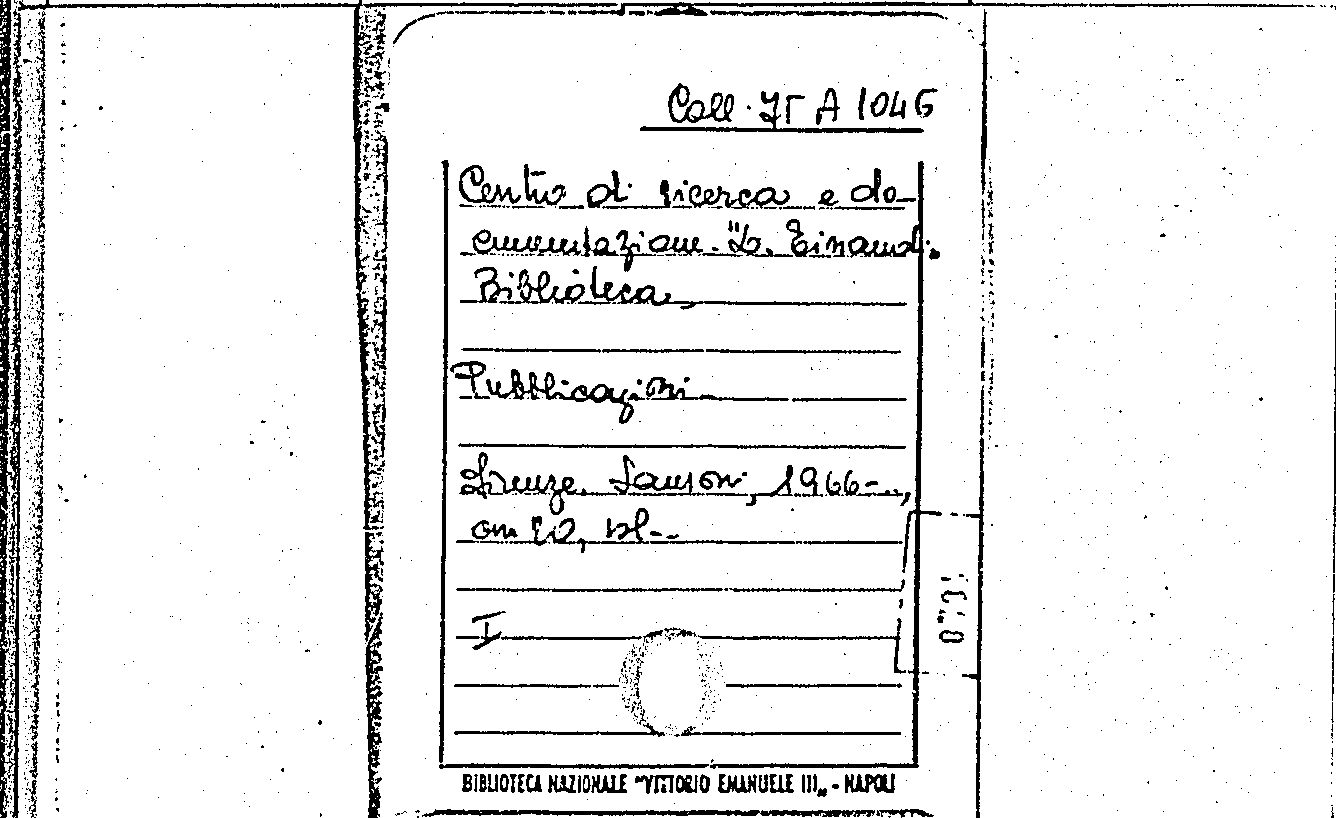 Coll. IT A 1046
Centro di ricerca e do-
cumentazione "L. Einaudi.
Biblioteca.
Pubblicazioni.
Firenze. Sansoni, 1966-..,
cm 20, vl-..
I
BIBLIOTECA NAZIONALE "VITTORIO EMANUELE III„ - NAPOLI